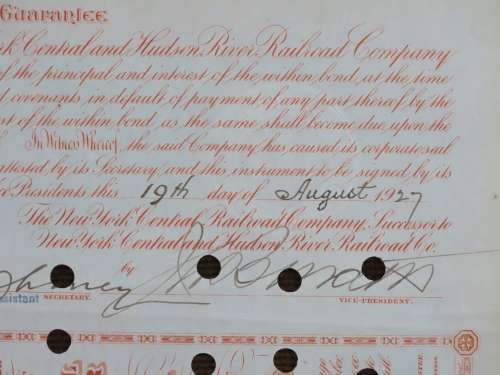 Guarantee
rk Central and Hudson River Railroad Company
of the principal and interest of the within bond, at the time
d covenants, in default of payment of any part thereof by the
st of the within bond, as the same shall become due, upon the
In Witness Whereof, the said Company has caused its corporate seal
attested by its Secretary, and this instrument to be signed by its
ce Presidents this 19th day of August 1927
The New York Central Railroad Company, Successor to
New York Central and Hudson River Railroad Co.
by
Assistant SECRETARY. VICE-PRESIDENT.